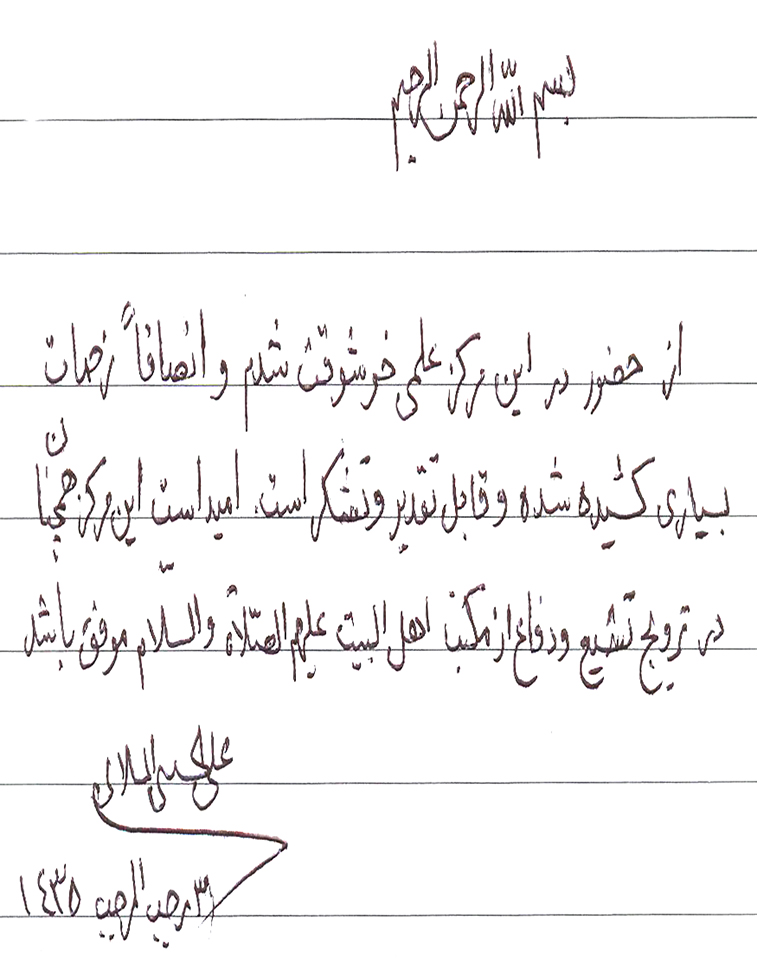 بسم الله الرحمن الرحیم
از حضور در این مرکز علمی خوشوقت شدم و انصافاً زحمات
بسیاری کشیده شده و قابل تقدیر و تشکر است. امید است این مرکز همچنان
در ترویج تشیع و دفاع از مکتب اهل البیت علیهم الصّلاة والسّلام موفق باشد
علی الحسینی المیلانی
رجب المرجب ١٤٣٥